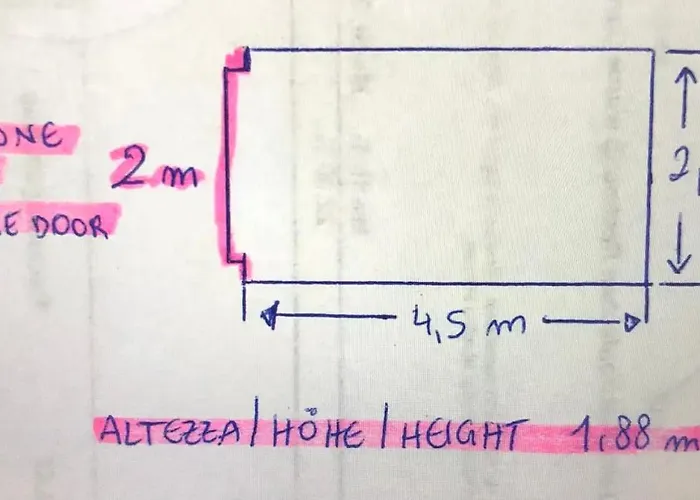 ONE
2 m
E DOOR
2,
4,5 m
ALTEZZA / HÖHE / HEIGHT 1,88 m